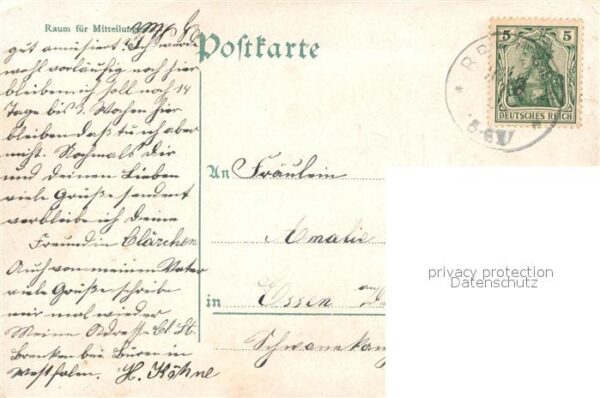 Raum für Mitteilungen
Postkarte
gut amüsiert. Ich werde
wohl vorläufig noch hier
bleiben ich soll noch 14
Tage bis 3 Wochen hier
bleiben daß tu ich aber
nicht. Nochmals Dir
und deinen Lieben
viele Grüße sendent
verbleibe ich deine
Freundin Clärchen
Auch von meinem Vater
viele Grüße schreibe
mir mal wieder
Meine Adresse Cl. St.
Brenken bei Büren in
Westfalen. H. Köhne
5 5
DEUTSCHES REICH
An Fräulein
Amalie
in Essen
privacy protection
Datenschutz